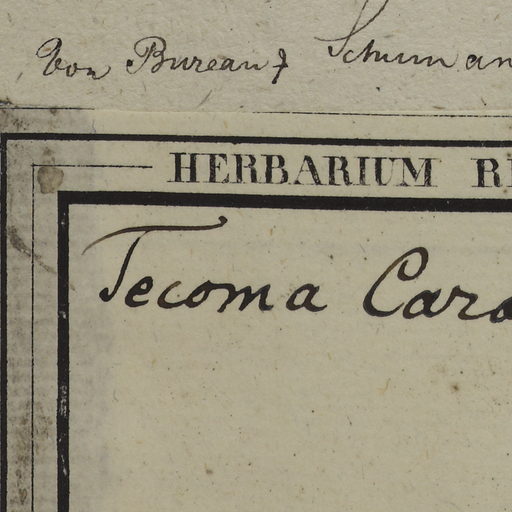 Von Bureau & Schuman
HERBARIUM R
Tecoma Caro